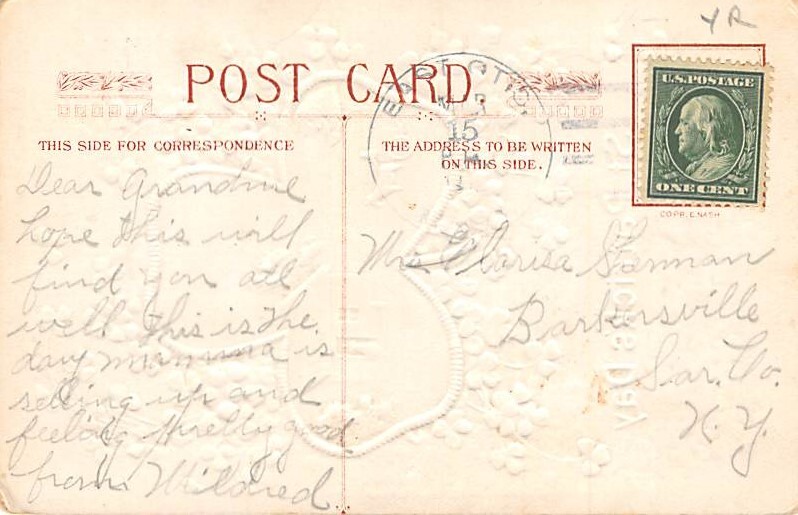 YR
POST CARD
THIS SIDE FOR CORRESPONDENCE
THE ADDRESS TO BE WRITTEN
ON THIS SIDE.
U.S. POSTAGE
ONE CENT
COPR. E. NASH
EAST OTIS
15
Dear Grandma
hope this will
find you all
well This is the
day mamma is
setting up and
feeling pretty good
from Mildred.
Mrs Clarisa Sherman
Barkersville
Sar. Co.
N. Y.